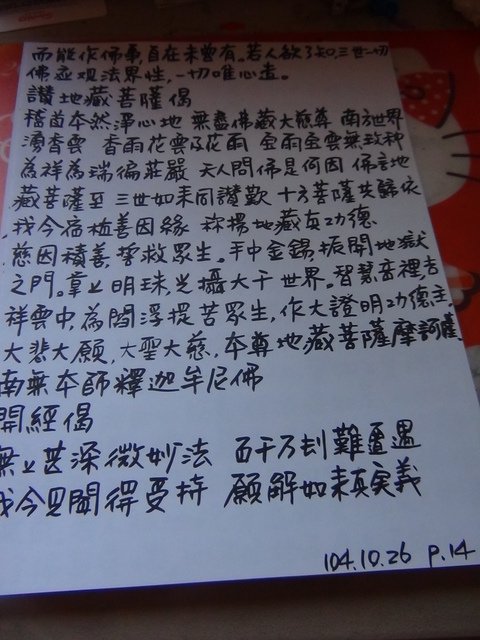 而能作佛事,自在未曾有。若人欲了知,三世一切
佛應觀法界性,一切唯心造。
讚地藏菩薩偈
稽首本然淨心地 無盡佛藏大慈尊 南方世界
湧香雲 香雨花雲及花雨 宝雨宝雲無数种
為祥為瑞徧莊嚴 天人問佛是何因 佛言地
藏菩薩至 三世如來同讚歎 十方菩薩共歸依
我今宿植善因緣 称揚地藏真功德
慈因積善,誓救眾生。手中金錫,振開地獄
之門。掌上明珠,光攝大千世界。智慧音裡吉
祥雲中,為閻浮提苦眾生,作大證明功德主,
大悲大願,大聖大慈,本尊地藏菩薩摩訶薩
南無本師釋迦牟尼佛
開經偈
無上甚深微妙法 百千万刧難遭遇
我今見聞得受持 願解如來真実義
104.10.26 p.14